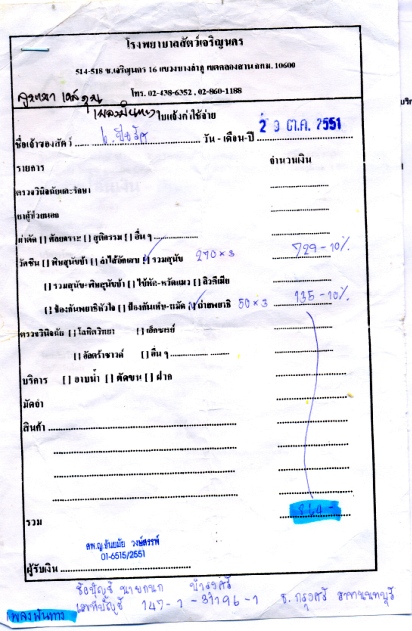 โรงพยาบาลสัตว์เจริญนคร
514-518 ซ.เจริญนคร 16 แขวงบางลำภู เขตคลองสาน กทม. 10600
โทร. 02-438-6352 , 02-860-1188
ใบแจ้งค่าใช้จ่าย
2 9 ต.ค. 2551
ชื่อเจ้าของสัตว์ วัน - เดือน-ปี
รายการ จำนวนเงิน
ตรวจวินิจฉัยและรักษา
ยาผู้ป่วยนอก
ผ่าตัด [ ] ศัลยกรรม [ ] สูติกรรม [ ] อื่น ๆ
วัคซีน [ ] พิษสุนัขบ้า [ ] ลำไส้อักเสบ [/] รวมสุนัข 270 × 3 729 -10%
[ ] รวมสุนัข+พิษสุนัขบ้า [ ] ไข้หัด-หวัดแมว [ ] ลิวคีเมีย
[ ] ป้องกันพยาธิหัวใจ [ ] ป้องกันเห็บ-หมัด [/] ถ่ายพยาธิ 50 × 3 135 -10%
ตรวจวินิจฉัย [ ] โลหิตวิทยา [ ] เอ็กซเรย์
[ ] อัลตร้าซาวด์ [ ] อื่น ๆ
บริการ [ ] อาบน้ำ [ ] ตัดขน [ ] ฝาก
มัดจำ
สินค้า
รวม
สพ.ญ.
01-6515/2551
ผู้รับเงิน
ชื่อบัญชี นายกนก
เลขที่บัญชี 147-1-31196-1 ธ. กรุงศรี สาขานนทบุรี
เพลงพิณทาง